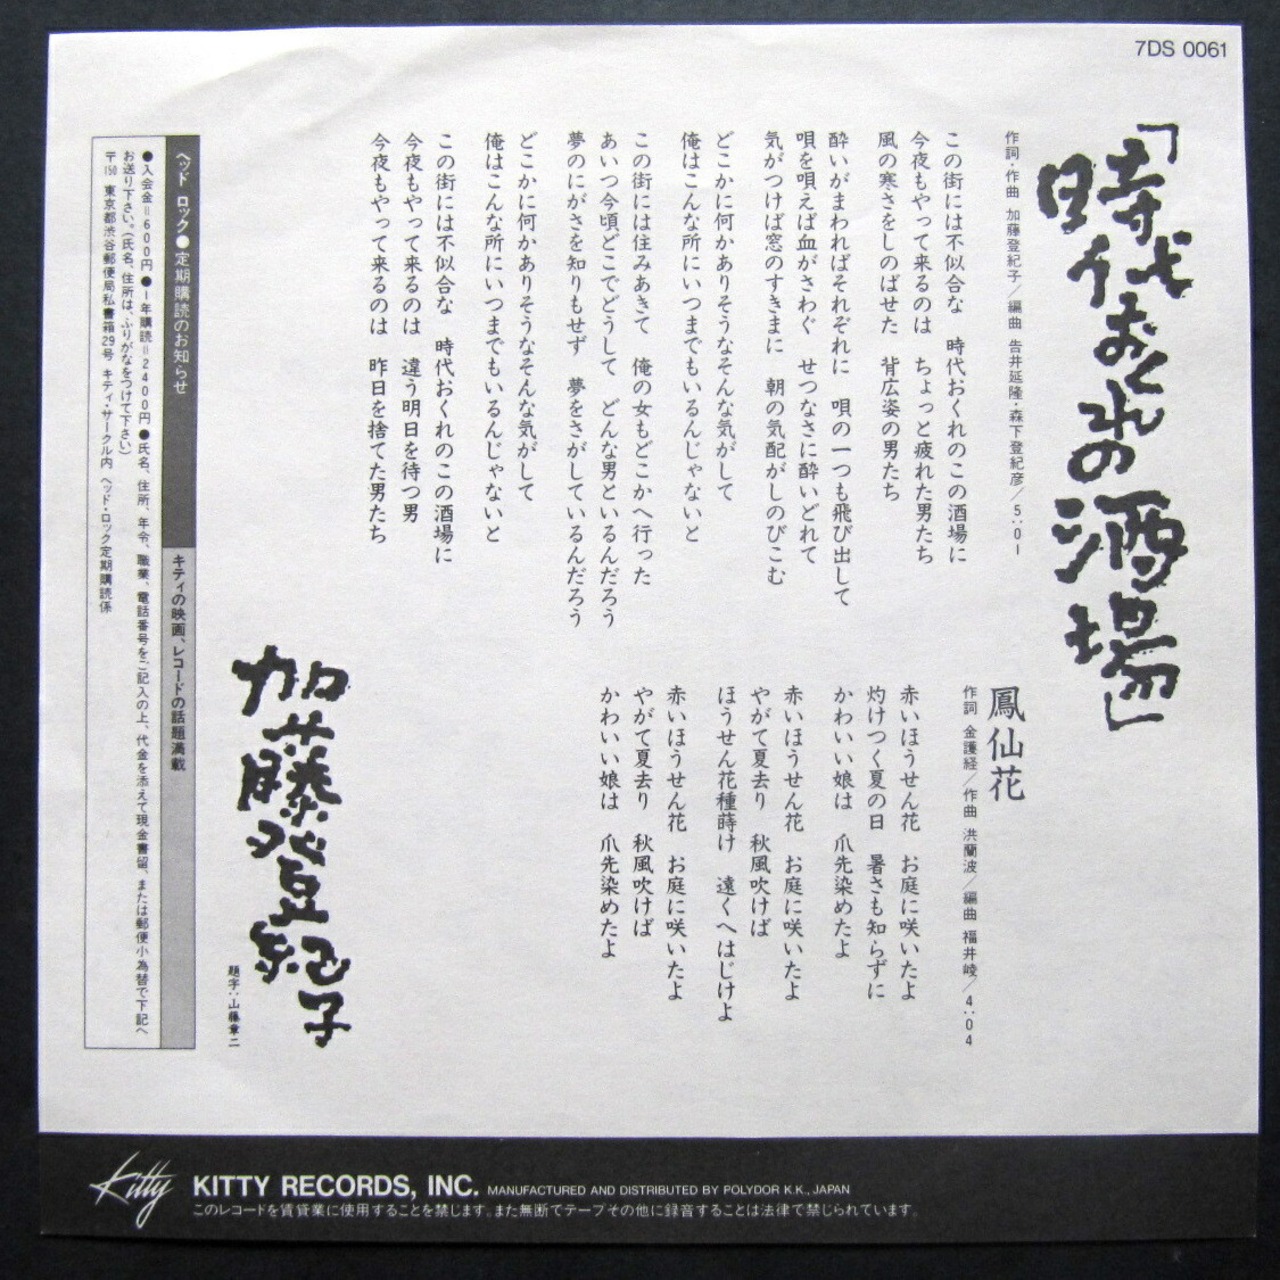 7DS 0061
「時代おくれの酒場」
作詞・作曲 加藤登紀子／編曲 告井延隆・森下登紀彦／5:01
この街には不似合な 時代おくれのこの酒場に
今夜もやって来るのは ちょっと疲れた男たち
風の寒さをしのばせた 背広姿の男たち
酔いがまわればそれぞれに 唄の一つも飛び出して
唄を唄えば血がさわぐ せつなさに酔いどれて
気がつけば窓のすきまに 朝の気配がしのびこむ
どこかに何かありそうなそんな気がして
俺はこんな所にいつまでもいるんじゃないと
この街には住みあきて 俺の女もどこかへ行った
あいつ今頃どこでどうして どんな男といるんだろう
夢のにがさを知りもせず 夢をさがしているんだろう
どこかに何かありそうなそんな気がして
俺はこんな所にいつまでもいるんじゃないと
この街には不似合な 時代おくれのこの酒場に
今夜もやって来るのは 違う明日を待つ男
今夜もやって来るのは 昨日を捨てた男たち
鳳仙花
作詞 金護経／作曲 洪蘭波／編曲 福井崚／4:04
赤いほうせん花 お庭に咲いたよ
灼けつく夏の日 暑さも知らずに
かわいい娘は 爪先染めたよ
赤いほうせん花 お庭に咲いたよ
やがて夏去り 秋風吹けば
ほうせん花種蒔け 遠くへはじけよ
赤いほうせん花 お庭に咲いたよ
やがて夏去り 秋風吹けば
かわいい娘は 爪先染めたよ
加藤登紀子
題字：山藤章二
ヘッド ロック●定期購読のお知らせ
キティの映画、レコードの話題満載
●入会金＝600円●1年購読＝2400円●氏名、住所、年令、職業、電話番号をご記入の上、代金を添えて現金書留、または郵便小為替で下記へ
お送り下さい。（氏名、住所は、ふりがなをつけて下さい）
〒150 東京都渋谷郵便局私書箱29号 キティ・サークル内 ヘッド・ロック定期購読係
Kitty
KITTY RECORDS, INC. MANUFACTURED AND DISTRIBUTED BY POLYDOR K.K., JAPAN
このレコードを賃貸業に使用することを禁じます。また無断でテープその他に録音することは法律で禁じられています。